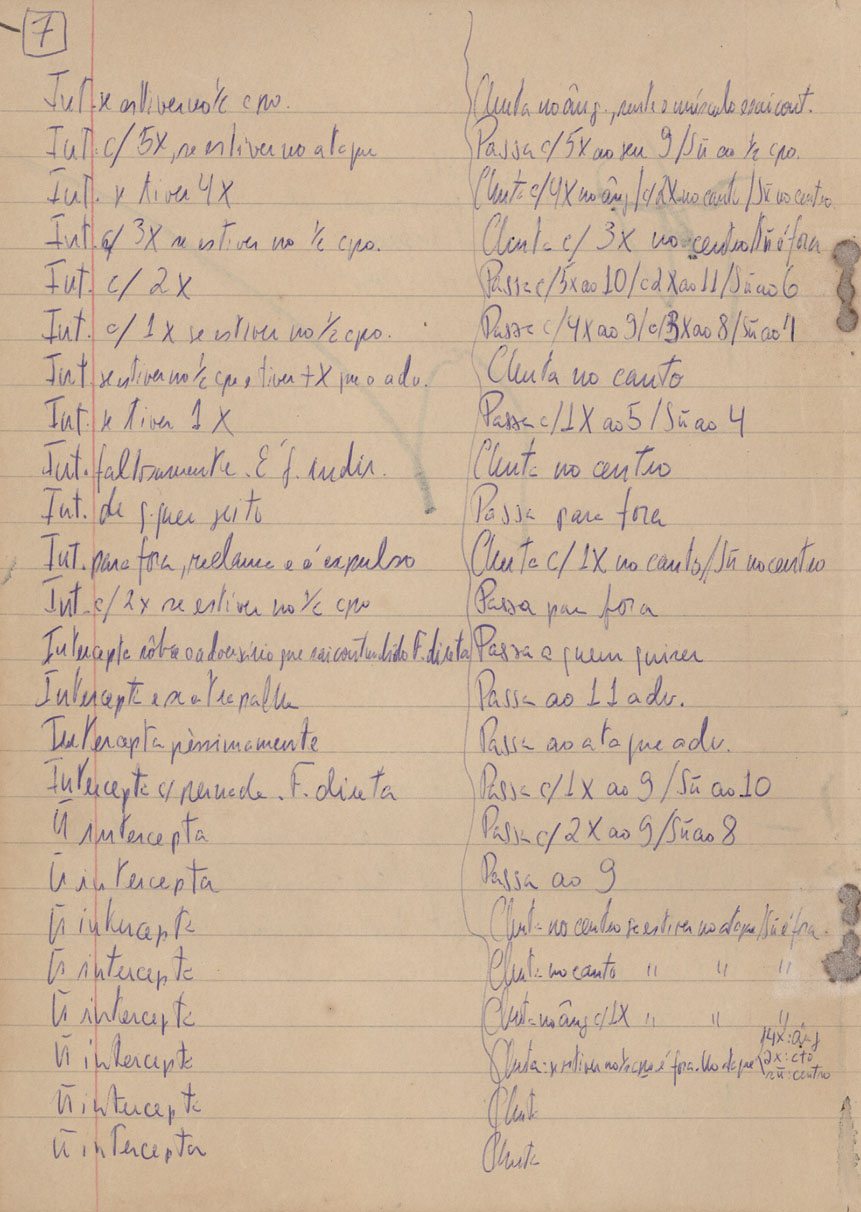 7
Int. se estiver no ½ cpo.
Int. c/ 5X, se estiver no ataque
Int. se tiver 4X
Int. c/ 3X se estiver no ½ cpo.
Int. c/ 2X
Int. c/ 1X se estiver no ½ cpo.
Int. se estiver no ½ cpo e tiver + X que o adv.
Int. se tiver 1X
Int. faltosamente. É f. indir.
Int. de qquer jeito
Int. para fora, reclama e é expulso
Int. c/ 2X se estiver no ½ cpo
Intercepta sôbre o adversário que sai contundido F. direta
Intercepta e se atrapalha
Intercepta pèssimamente
Intercepta c/ pernada. F. direta
Ñ intercepta
Ñ intercepta
Ñ intercepta
Ñ intercepta
Ñ intercepta
Ñ intercepta
Ñ intercepta
Ñ intercepta
Chuta no âng., sente o músculo e sai cont.
Passa c/ 5X ao seu 9/Sñ ao ½ cpo.
Chuta c/ 4X no âng/c/2X no canto/Sñ no centro
Chuta c/ 3X no centro/Sñ é fora
Passa c/ 5X ao 10/c2X ao 11/Sñ ao 6
Passa c/ 4X ao 9/c/3X ao 8/Sñ ao 4
Chuta no canto
Passa c/1X ao 5/Sñ ao 4
Chuta no centro
Passa para fora
Chuta c/ 1X no canto/Sñ no centro
Passa par fora
Passa a quem quiser
Passa ao 11 adv.
Passa ao ataque adv.
Passa c/1X ao 9/Sñ ao 10
Passa c/2X ao 9/Sñ ao 8
Passa ao 9
Chuta no centro se estiver no ataque/Sñ é fora.
Chuta no canto " " "
Chuta no âng c/1X " " "
Chuta: se estiver no ½ cpo é fora. No ataque
4X: âng
2X: cto
sñ: centro
Chuta
Chuta